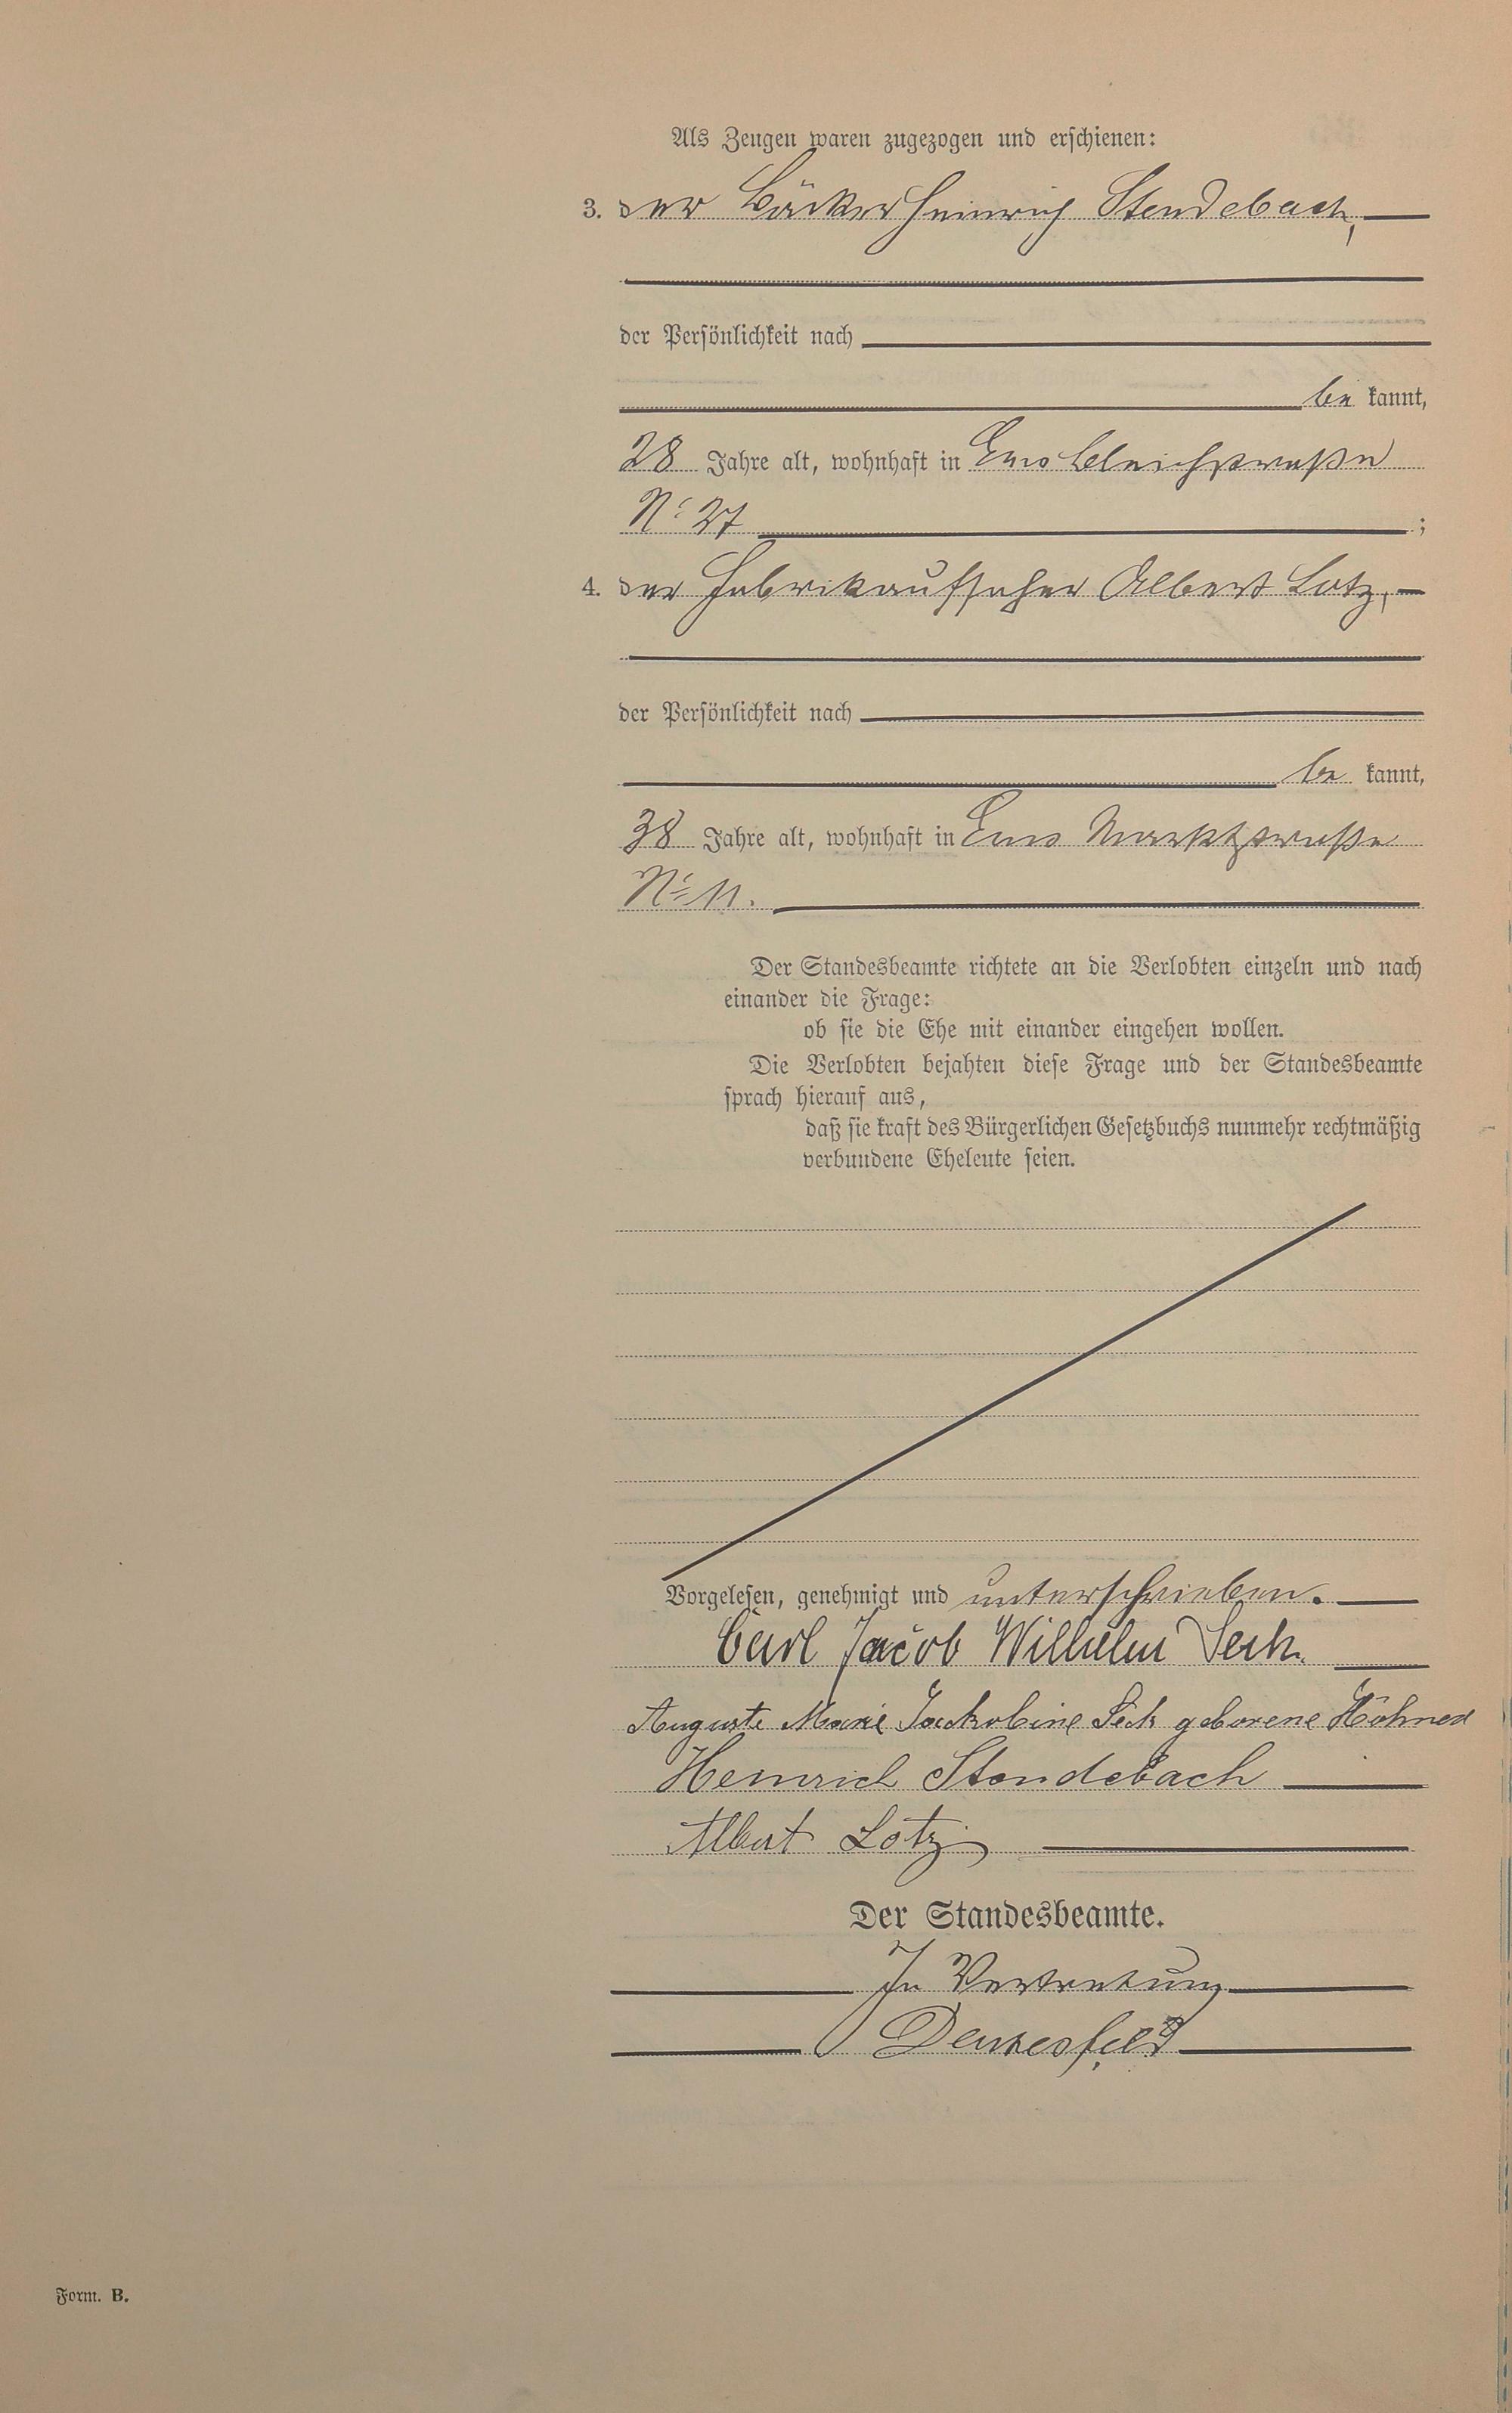 Als Zeugen waren zugezogen und erschienen:
3. der Bäcker Heinrich Stendebach,
der Persönlichkeit nach
be kannt,
28 Jahre alt, wohnhaft in Ems Bleichstraße
No 27 ;
4. der Fabrikaufseher Albert Lotz,
der Persönlichkeit nach
be kannt,
38 Jahre alt, wohnhaft in Ems Marktstraße
No 11.
Der Standesbeamte richtete an die Verlobten einzeln und nach
einander die Frage:
ob sie die Ehe mit einander eingehen wollen.
Die Verlobten bejahten diese Frage und der Standesbeamte
sprach hierauf aus,
daß sie kraft des Bürgerlichen Gesetzbuchs nunmehr rechtmäßig
verbundene Eheleute seien.
Vorgelesen, genehmigt und unterschrieben.
Carl Jacob Wilhelm Seck.
Auguste Marie Jackobine Seck geborene Höhner
Heinrich Stendebach
Albert Lotz
Der Standesbeamte.
In Vertretung
Form. B.